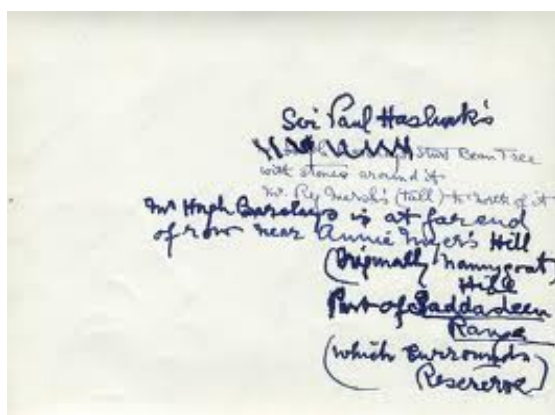 Sir Paul Hasluck's
Sturt Bean Tree
with stones around it
Mr. Reg Marsh's (tall) to north of it
Mr Hugh Barclays is at far end
of row near Annie Myer's Hill
(Originally Nannygoat
Hill
Part of Saddadeen
Range
(which surrounds
Reserve)